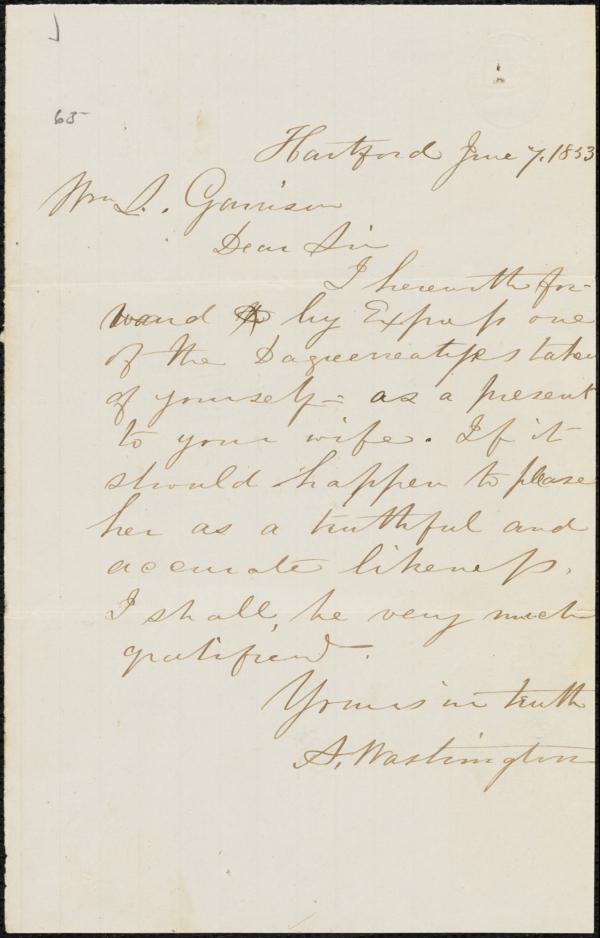 65
Hartford June 7, 1853
Wm L. Garrison
Dear Sir
I herewith for-
ward by Express one
of the Dagueereatypes taken
of yourself = as a present
to your wife. If it
should happen to please
her as a truthful and
accurate likeness,
I shall, be very much
gratifiend.
Yours in truth
A. Washington